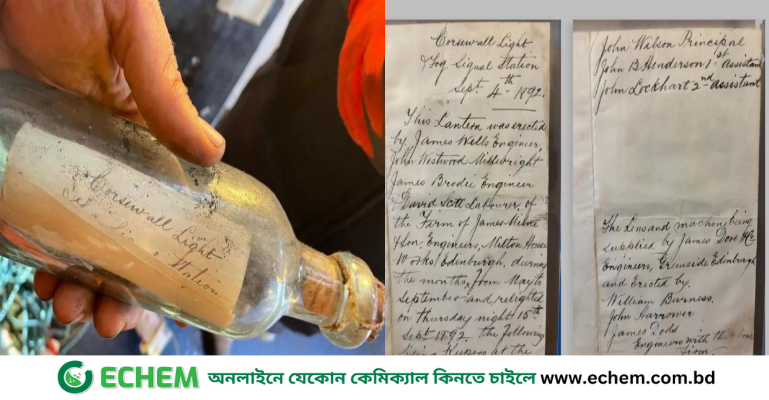 Corsewall Light
Station
Corsewall Light
& Fog Signal Station
Sept. 4th 1892.
This Lantern was erected
by James Wells Engineer,
John Westwood Millwright
James Brodie Engineer
David Scott Labourer, of
the Firm of James Milne
& Son, Engineers, Milton House
Works, Edinburgh, during
the months from May to
September and relighted
on Thursday night 15th
Sept 1892. the following
being Keepers at the
John Wilson Principal
John B Henderson 1st assistant
John Lockhart 2nd assistant
The Lens and machine being
supplied by James Dove & Co
Engineers, Greenside Edinburgh
and Erected by.
William Burness.
John Harrower
James Dods
Engineers with the above
firm
ECHEM অনলাইনে যেকোন কেমিক্যাল কিনতে চাইলে www.echem.com.bd